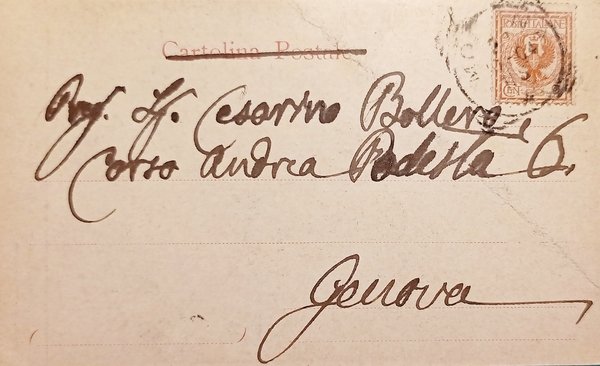 Cartolina Postale
POSTE ITALIANE
Cesarino Bollero,
Corso Andrea Podestà 6.
Genova